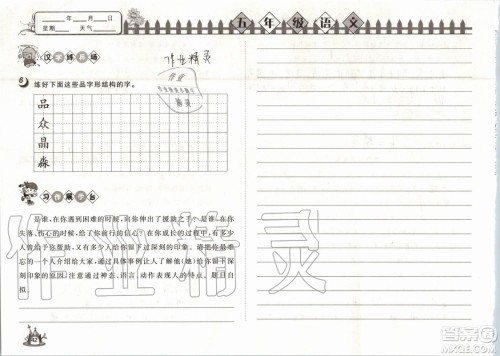 ____年__月__日
星期____ 天气____
五年级语文
汉字练习场
作业精灵
6 练好下面这些品字形结构的字。
品
众
晶
淼
作业
精灵
习作展示台
是谁，在你遇到困难的时候，向你伸出了援助之手？是谁，在你
失落、伤心的时候，给了你前行的信心？在你成长的过程中，有多少
人曾给予你帮助，又有多少人给你留下过深刻的印象。请把你最难
忘的一个人介绍给大家，通过具体事例让人了解他（她）给你留下
深刻印象的原因。注意通过神态、语言、动作表现人的特点。题目自
拟。
作业精灵
42
答案圈
MXQE.COM